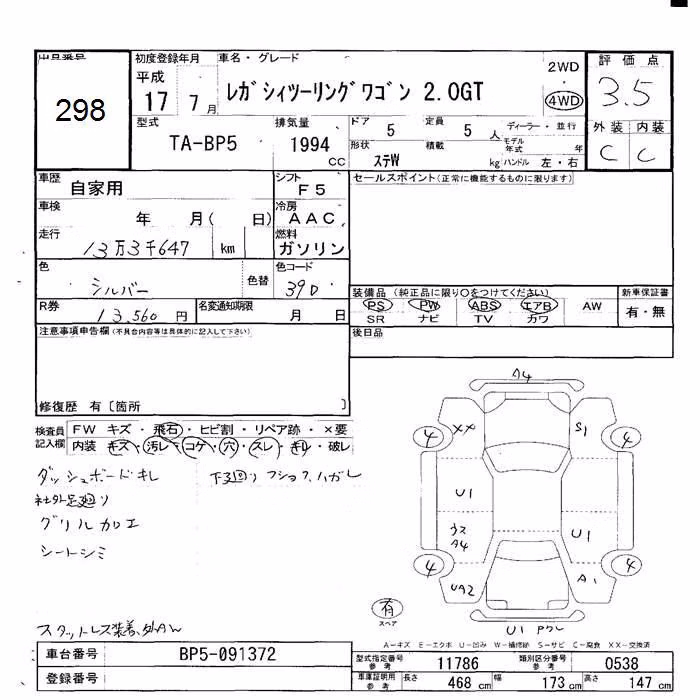 出品番号
298
初度登録年月
平成
17 7 月
車名・グレード
レガシィツーリングワゴン 2.0GT
2WD
4WD
評価点
3.5
外装 内装
C C
型式
TA-BP5
排気量
1994
cc
ドア
5
定員
5 人
形状
ステW
積載
kg
ディーラー・並行
モデル年式
年
ハンドル 左・右
車歴
自家用
シフト
F5
車検
年 月( 日)
冷房
AAC
走行
13万3千647 km
燃料
ガソリン
色
シルバー
色替
色コード
39D
R券
13,560 円
名変通知期限
月 日
セールスポイント(正常に機能するものに限ります)
装備品(純正品に限り○をつけてください)
PS PW ABS エアB AW
SR ナビ TV カワ
新車保証書
有・無
後日品
注意事項申告欄(不具合内容等は具体的に記入して下さい)
修復歴 有〔箇所 〕
検査員
記入欄
FW キズ・飛石・ヒビ割・リペア跡・×要
内装 キズ・汚レ・コゲ・穴・スレ・キレ・破レ
ダッシュボードキレ
下廻り
社外足廻り
グリル加工
シートシミ
スタットレス装着、外AW
A4
4
XX
S1
4
U1
ウス
A4
U1
4
UA2
A1
4
U1
有
スペア
A-キズ E-エクボ U-凹み W-補修跡 S-サビ C-腐食 XX-交換済
車台番号
BP5-091372
登録番号
型式指定番号
参考
11786
類別区分番号
参考
0538
車庫証明用
参考
長さ
468 cm
幅
173 cm
高さ
147 cm